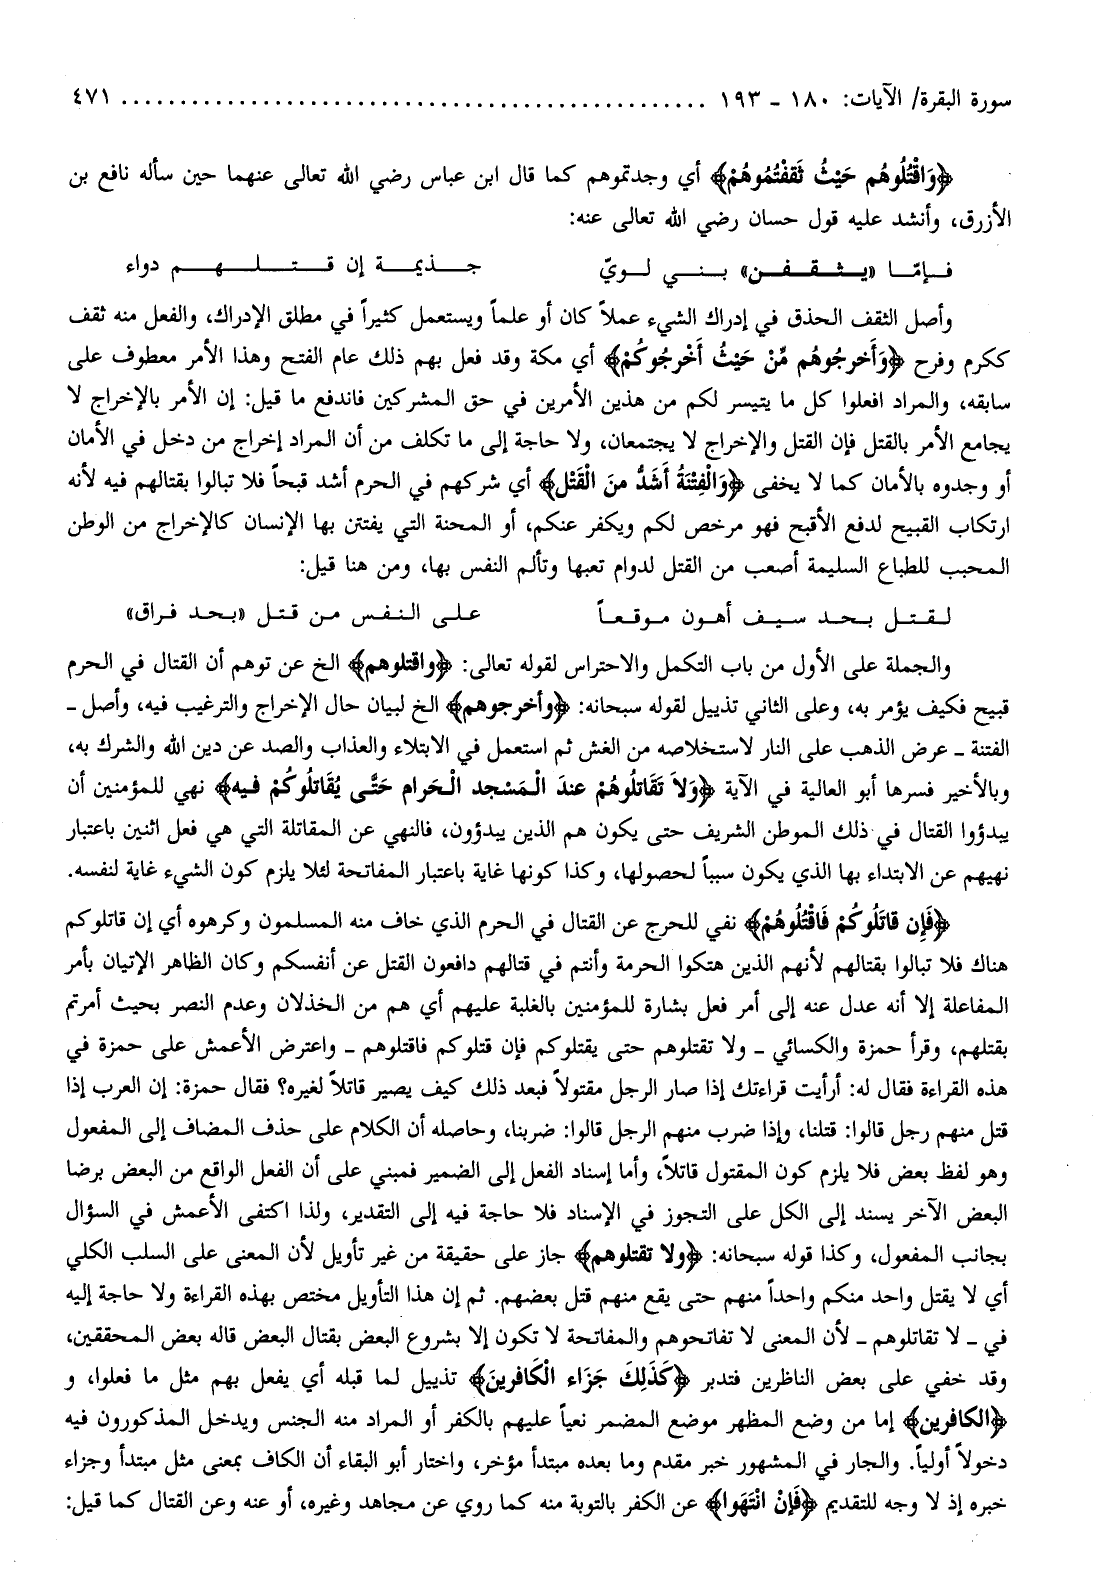 سورة البقرة/ الآيات: ١٨٠ ـ ١٩٣ ................................................ ٤٧١
﴿وَاقْتُلُوهُم حَيْثُ ثَقفْتُمُوهُمْ﴾ أي وجدتموهم كما قال ابن عباس رضي الله تعالى عنهما حين سأله نافع بن
الأزرق، وأنشد عليه قول حسان رضي الله تعالى عنه:
فـإمّـا «يـثـقـفـن» بـنـي لـويّ جـذيمـة إن قـتـلـهـم دواء
وأصل الثقف الحذق في إدراك الشيء عملاً كان أو علماً ويستعمل كثيراً في مطلق الإدراك، والفعل منه ثقف
ككرم وفرح ﴿وَأَخرجُوهُم مِّنْ حَيْثُ أَخْرجُوكُمْ﴾ أي مكة وقد فعل بهم ذلك عام الفتح وهذا الأمر معطوف على
سابقه، والمراد افعلوا كل ما يتيسر لكم من هذين الأمرين في حق المشركين فاندفع ما قيل: إن الأمر بالإخراج لا
يجامع الأمر بالقتل فإن القتل والإخراج لا يجتمعان، ولا حاجة إلى ما تكلف من أن المراد إخراج من دخل في الأمان
أو وجدوه بالأمان كما لا يخفى ﴿وَالْفِتنَةُ أَشَدُّ منَ الْقَتْل﴾ أي شركهم في الحرم أشد قبحاً فلا تبالوا بقتالهم فيه لأنه
ارتكاب القبيح لدفع الأقبح فهو مرخص لكم ويكفر عنكم، أو المحنة التي يفتتن بها الإنسان كالإخراج من الوطن
المحبب للطباع السليمة أصعب من القتل لدوام تعبها وتألم النفس بها، ومن هنا قيل:
لـقـتـل بـحـد سـيـف أهـون مـوقـعـاً عـلـى الـنـفـس مـن قـتـل «بـحـد فـراق»
والجملة على الأول من باب التكمل والاحتراس لقوله تعالى: ﴿واقتلوهم﴾ الخ عن توهم أن القتال في الحرم
قبيح فكيف يؤمر به، وعلى الثاني تذييل لقوله سبحانه: ﴿وأخرجوهم﴾ الخ لبيان حال الإخراج والترغيب فيه، وأصل ـ
الفتنة ـ عرض الذهب على النار لاستخلاصه من الغش ثم استعمل في الابتلاء والعذاب والصد عن دين الله والشرك به،
وبالأخير فسرها أبو العالية في الآية ﴿وَلاَ تَقَاتلُوهُمْ عندَ الْمَسْجد الْحَرام حَتَّى يُقَاتلُوكُمْ فيه﴾ نهي للمؤمنين أن
يبدؤوا القتال في ذلك الموطن الشريف حتى يكون هم الذين يبدؤون، فالنهي عن المقاتلة التي هي فعل اثنين باعتبار
نهيهم عن الابتداء بها الذي يكون سبباً لحصولها، وكذا كونها غاية باعتبار المفاتحة لئلا يلزم كون الشيء غاية لنفسه.
﴿فَإِن قاتَلُوكُمْ فَاقْتُلُوهُمْ﴾ نفي للحرج عن القتال في الحرم الذي خاف منه المسلمون وكرهوه أي إن قاتلوكم
هناك فلا تبالوا بقتالهم لأنهم الذين هتكوا الحرمة وأنتم في قتالهم دافعون القتل عن أنفسكم وكان الظاهر الإتيان بأمر
المفاعلة إلا أنه عدل عنه إلى أمر فعل بشارة للمؤمنين بالغلبة عليهم أي هم من الخذلان وعدم النصر بحيث أمرتم
بقتلهم، وقرأ حمزة والكسائي ـ ولا تقتلوهم حتى يقتلوكم فإن قتلوكم فاقتلوهم ـ واعترض الأعمش على حمزة في
هذه القراءة فقال له: أرأيت قراءتك إذا صار الرجل مقتولاً فبعد ذلك كيف يصير قاتلاً لغيره؟ فقال حمزة: إن العرب إذا
قتل منهم رجل قالوا: قتلنا، وإذا ضرب منهم الرجل قالوا: ضربنا، وحاصله أن الكلام على حذف المضاف إلى المفعول
وهو لفظ بعض فلا يلزم كون المقتول قاتلاً، وأما إسناد الفعل إلى الضمير فمبني على أن الفعل الواقع من البعض برضا
البعض الآخر يسند إلى الكل على التجوز في الإسناد فلا حاجة فيه إلى التقدير، ولذا اكتفى الأعمش في السؤال
بجانب المفعول، وكذا قوله سبحانه: ﴿ولا تقتلوهم﴾ جاز على حقيقة من غير تأويل لأن المعنى على السلب الكلي
أي لا يقتل واحد منكم واحداً منهم حتى يقع منهم قتل بعضهم. ثم إن هذا التأويل مختص بهذه القراءة ولا حاجة إليه
في ـ لا تقاتلوهم ـ لأن المعنى لا تفاتحوهم والمفاتحة لا تكون إلا بشروع البعض بقتال البعض قاله بعض المحققين،
وقد خفي على بعض الناظرين فتدبر ﴿كَذَلِكَ جَزَاء الْكَافرينَ﴾ تذييل لما قبله أي يفعل بهم مثل ما فعلوا، و
﴿الكافرين﴾ إما من وضع المظهر موضع المضمر نعياً عليهم بالكفر أو المراد منه الجنس ويدخل المذكورون فيه
دخولاً أولياً. والجار في المشهور خبر مقدم وما بعده مبتدأ مؤخر، واختار أبو البقاء أن الكاف بمعنى مثل مبتدأ وجزاء
خبره إذ لا وجه للتقديم ﴿فَإنْ انْتَهَوا﴾ عن الكفر بالتوبة منه كما روي عن مجاهد وغيره، أو عنه وعن القتال كما قيل: